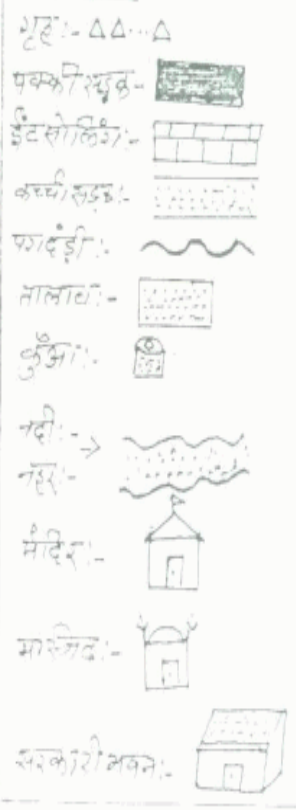 गृह:-
पक्की सड़क-
ईंट सोलिंग:-
कच्ची सड़क:-
पगदंड़ी:-
तालाब:-
कुँआ:-
नदी:-
नहर:-
मंदिर:-
मस्जिद:-
सरकारी भवन:-